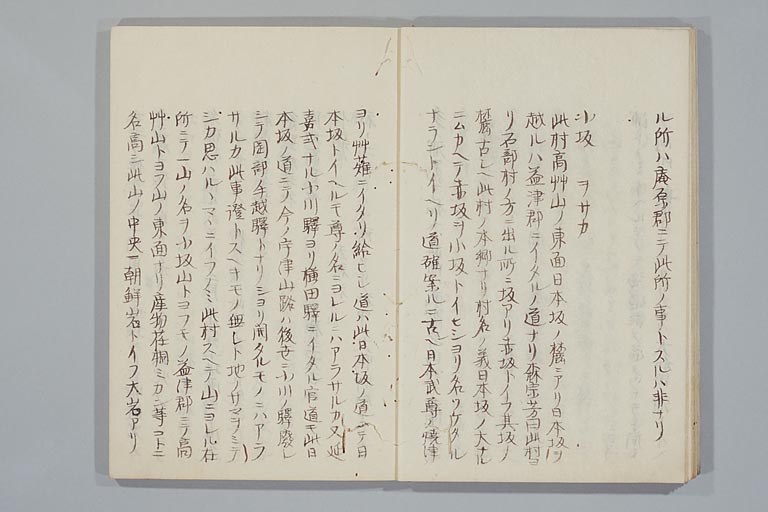 ル所ハ庵原郡ニテ此所ノ事トスルハ非ナリ
小坂　ヲサカ
此村高艸山ノ東面日本坂ノ麓ニアリ日本坂ヲ
越ルハ益津郡ニイタルノ道ナリ
リ石部村ノ方ニ出ル所ニ坂アリ赤坂トイフ其坂ノ
麓古ヘ此村ノ本郷ナリ村名ノ義日本坂ノ大ナル
ニムカヘテ赤坂ヲ小坂トイヒシヨリ名ツケタル
ナラントイヘリ道雄案ルニ古ヘ日本武尊ノ焼津
ヨリ艸薙ニイタリ給ヒシ道ハ此日本坂ノ道ニテ日
本坂トイヘルモ尊ノ名ニヨレルニハアラサルカ又延
喜式ナル小川驛ヨリ横田驛ニイタル官道モ此日
本坂ノ道ニテ今ノ宇津山路ハ後世ニ小川ノ驛廢レ
シテ岡部手越驛トナリシヨリ開タルモノニハアラ
サルカ此事證トスヘキモノ無レト地ノサマヲミテ
シカ思ハルヽマヽニイフノミ此村スヘテ山ニヨレル在
所ニテ一山ノ名ヲ小坂山トヨフモノ益津郡ニテ高
艸山トヨフ山ノ東面ナリ産物在桐ミカン等コトニ
名高シ此山ノ中央ニ朝鮮岩トイフ大岩アリ